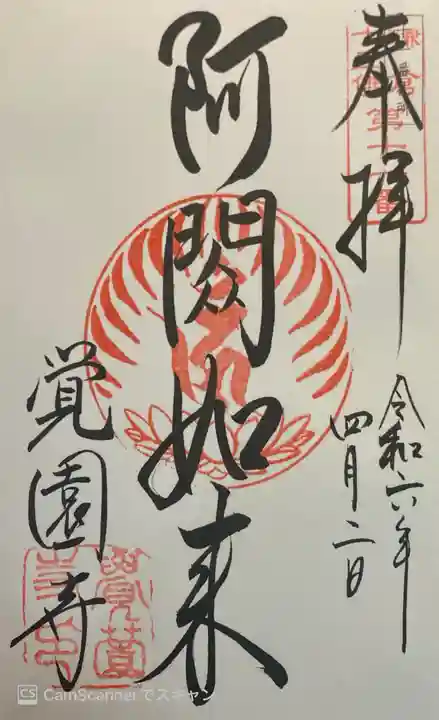 奉拝
令和六年
四月二日
阿閦如来
覚園寺
CS CamScannerでスキャン